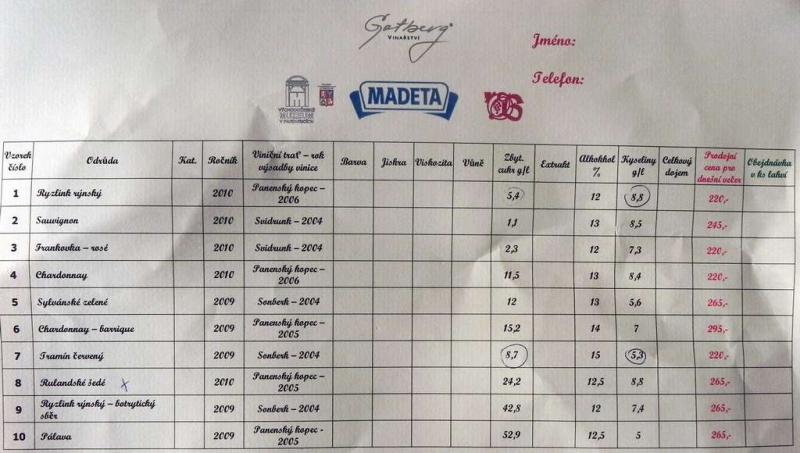 Gotberg
VINAŘSTVÍ
Jméno:
Telefon:
VÝCHODOČESKÉ
MUZEUM
V PARDUBICÍCH
MADETA
Vzorek číslo Odrůda Kat. Ročník Viniční trať – rok výsadby vinice Barva Jiskra Viskozita Vůně Zbyt. cukr g/l Extrakt Alhokhol % Kyseliny g/l Celkový dojem Prodejní cena pro dnešní večer Objednávka v ks lahví
1 Ryzlink rýnský 2010 Panenský kopec – 2006 5,4 12 8,8 220,-
2 Sauvignon 2010 Svidrunk – 2004 1,1 13 8,5 245,-
3 Frankovka – rosé 2010 Svidrunk – 2004 2,3 12 7,3 220,-
4 Chardonnay 2010 Panenský kopec – 2006 11,5 13 8,4 220,-
5 Sylvánské zelené 2009 Sonberk – 2004 12 13 5,6 265,-
6 Chardonnay – barrique 2009 Panenský kopec – 2005 15,2 14 7 295,-
7 Tramín červený 2009 Sonberk – 2004 8,7 15 5,3 220,-
8 Rulandské šedé x 2010 Panenský kopec – 2005 24,2 12,5 8,8 265,-
9 Ryzlink rýnský – botrytický sběr 2009 Sonberk – 2004 42,8 12 7,4 265,-
10 Pálava 2009 Panenský kopec - 2005 52,9 12,5 5 265,-